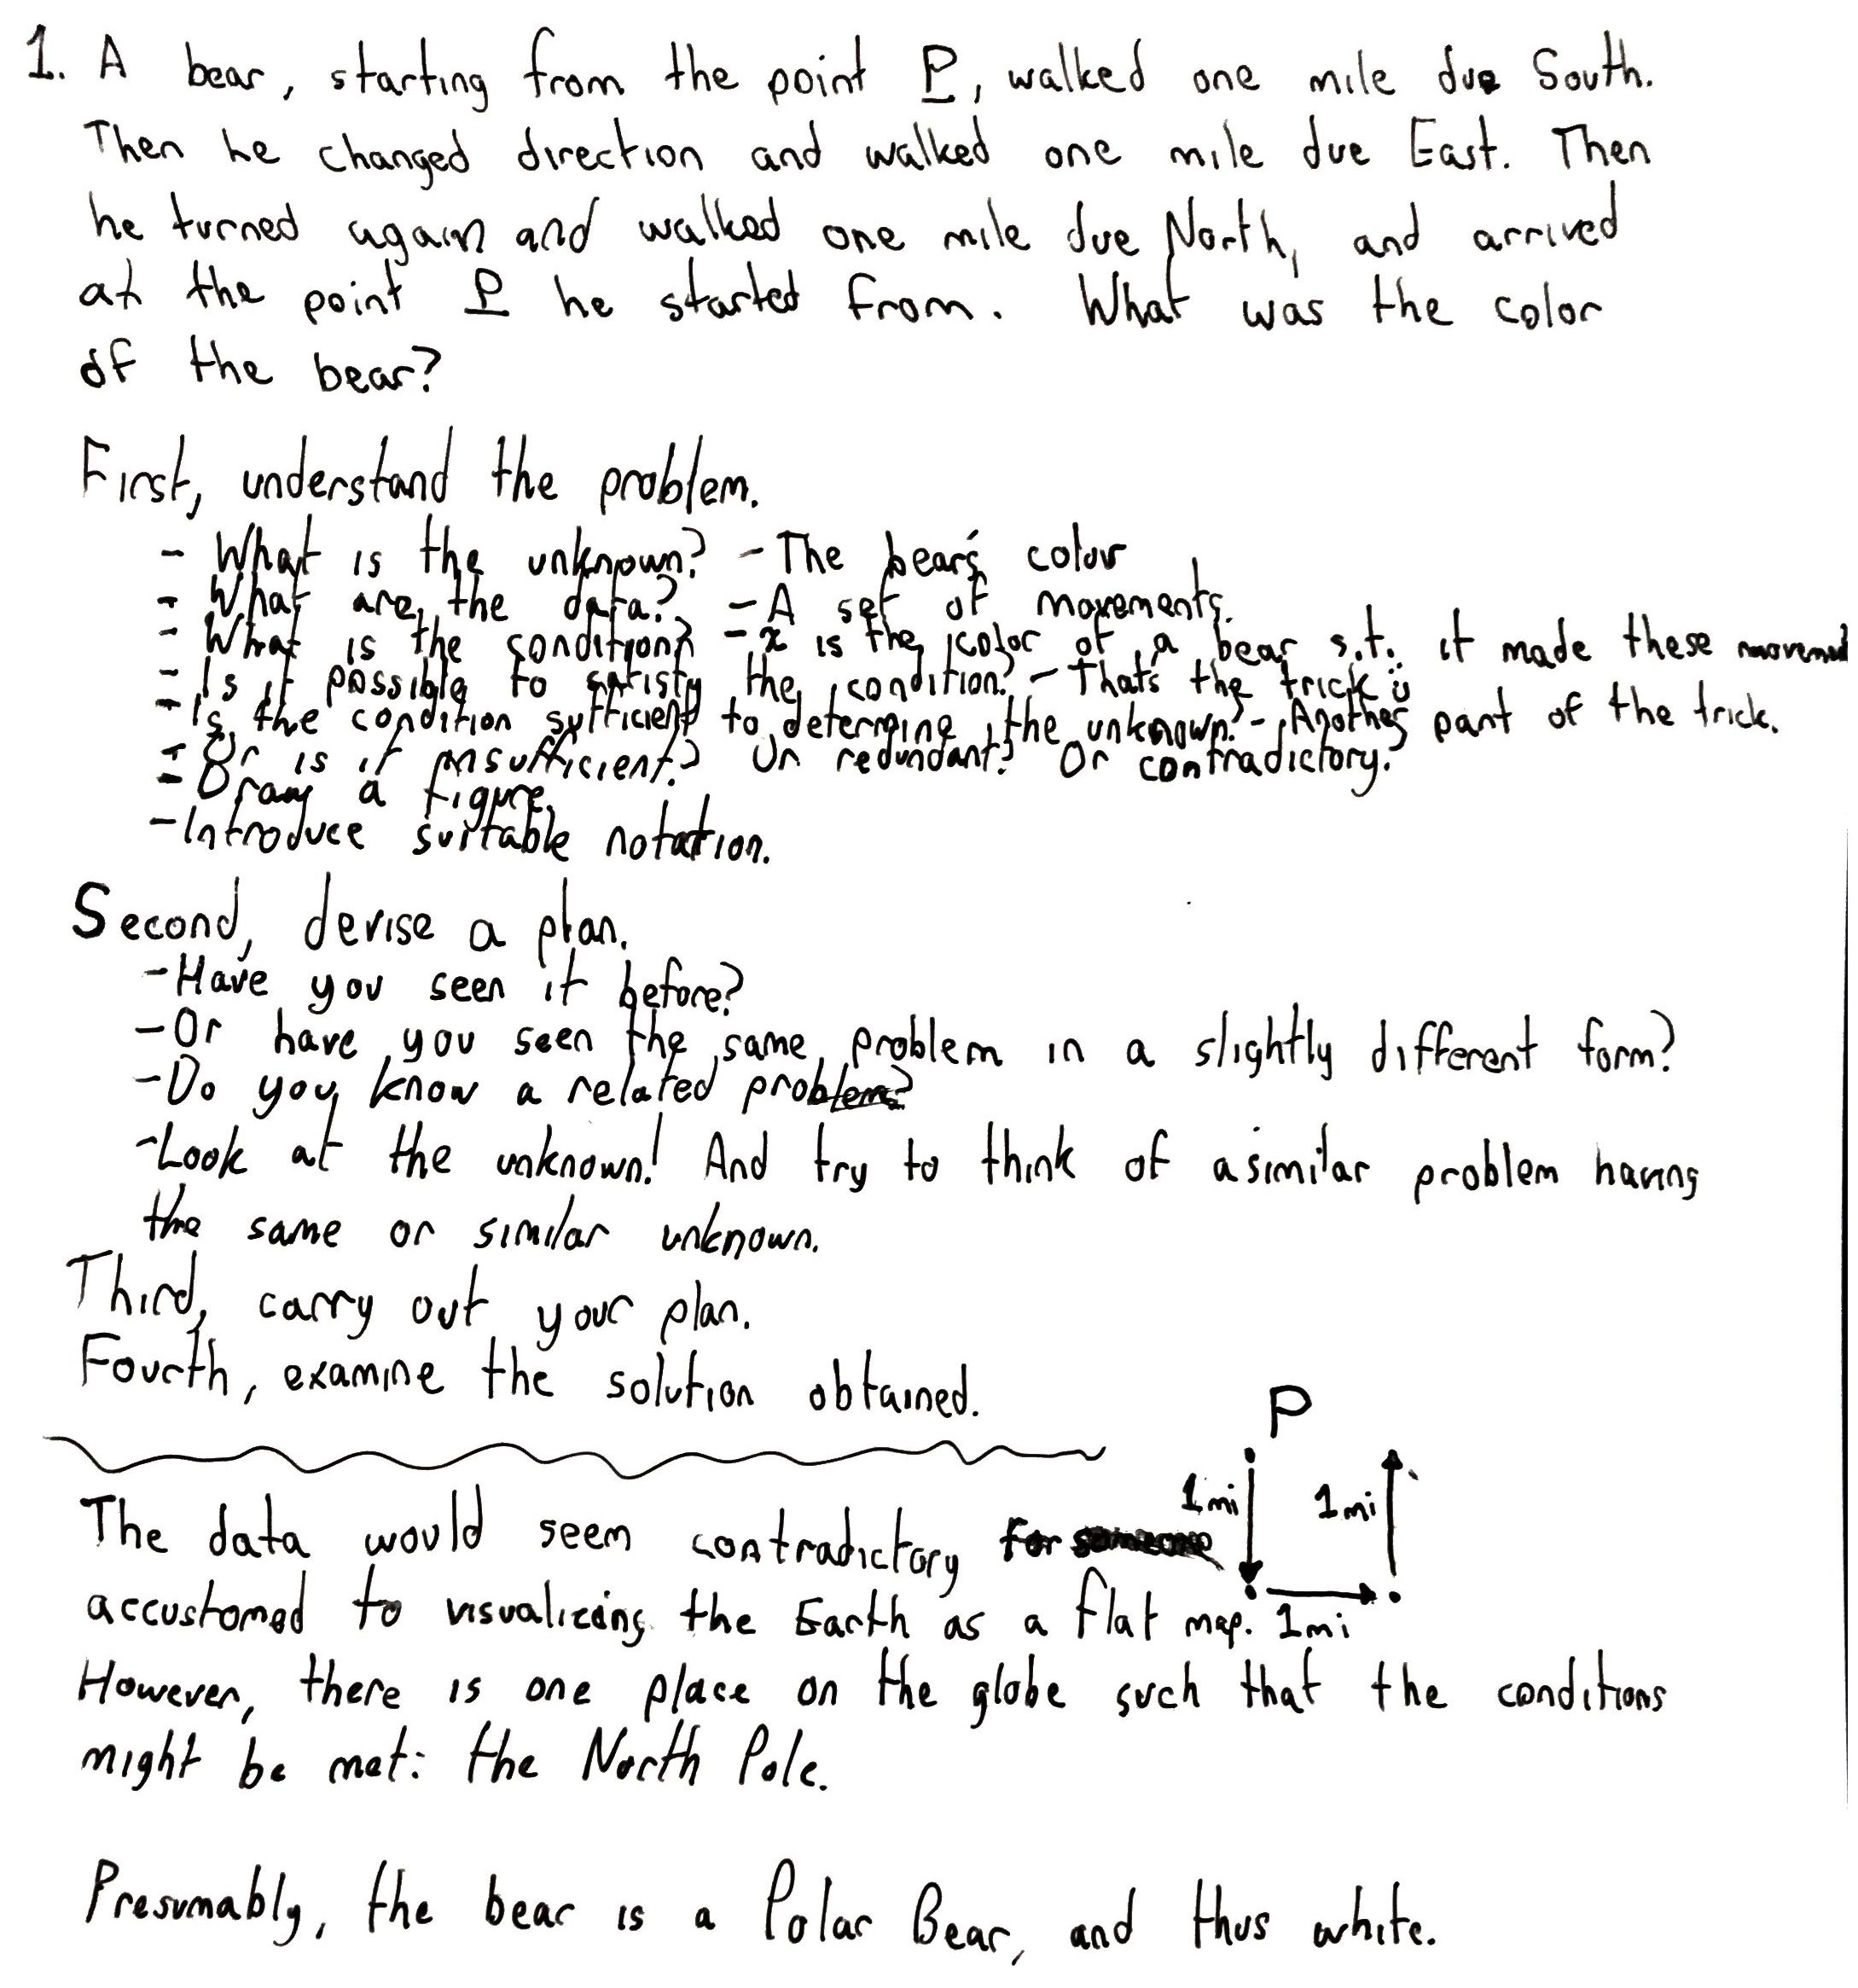 1. A bear, starting from the point P, walked one mile due South.
Then he changed direction and walked one mile due East. Then
he turned again and walked one mile due North, and arrived
at the point P he started from. What was the color
of the bear?
First, understand the problem.
- What is the unknown? - The bear's color
- What are the data? - A set of movements.
- What is the condition? - x is the color of a bear s.t. it made these movement
- Is it possible to satisfy the condition? - That's the trick ü
- Is the condition sufficient to determine the unknown? - Another part of the trick.
- Or is it insufficient? Or redundant? Or contradictory?
- Draw a figure.
- Introduce suitable notation.
Second, devise a plan.
- Have you seen it before?
- Or have you seen the same problem in a slightly different form?
- Do you know a related problem?
- Look at the unknown! And try to think of a similar problem having
the same or similar unknown.
Third, carry out your plan.
Fourth, examine the solution obtained.
P
1mi 1mi
The data would seem contradictory for someone
accustomed to visualizing the Earth as a flat map. 1mi
However, there is one place on the globe such that the conditions
might be met: the North Pole.
Presumably, the bear is a Polar Bear, and thus white.